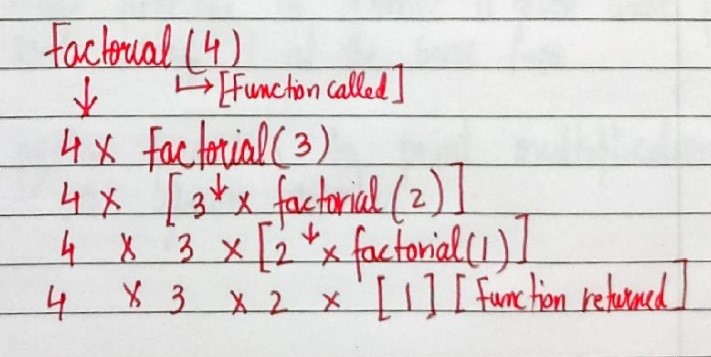 factorial (4)
↓ ↳ [Function called]
4 x factorial(3)
4 x [3 ↓ x factorial (2)]
4 x 3 x [2 ↓ x factorial(1)]
4 x 3 x 2 x [1] [function returned]